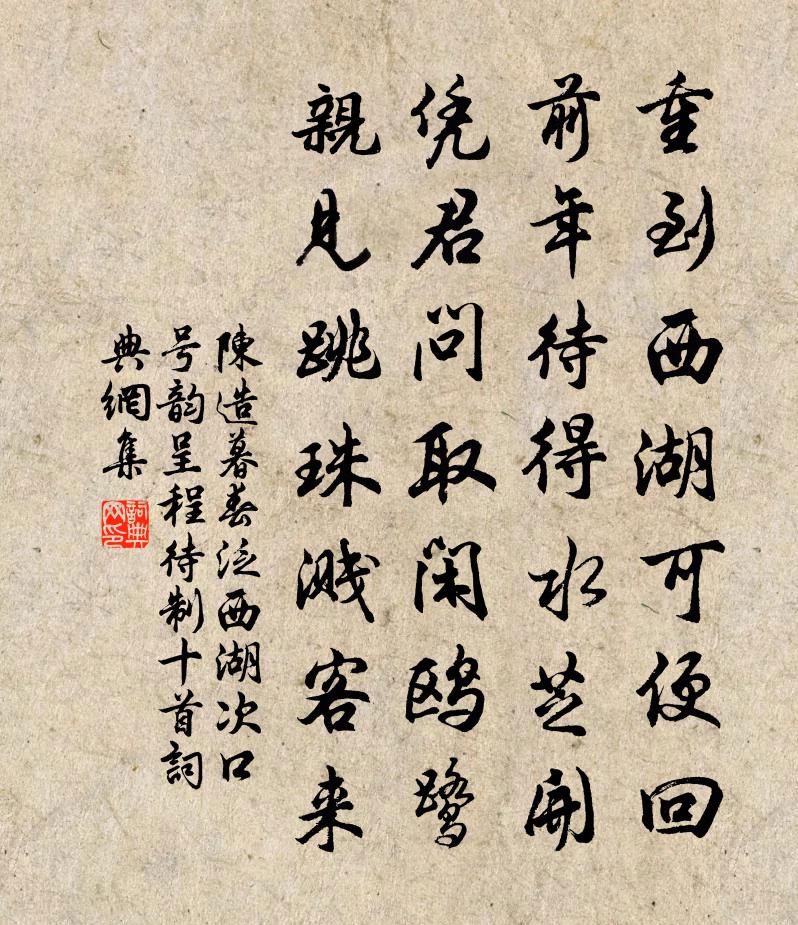 重到西湖可便回
前年待得水芝開
凭君問取閑鷗鷺
親見跳珠濺客来
陳造暮春泛西湖次口
号韵呈程待制十首詞
典網集
詞典網印